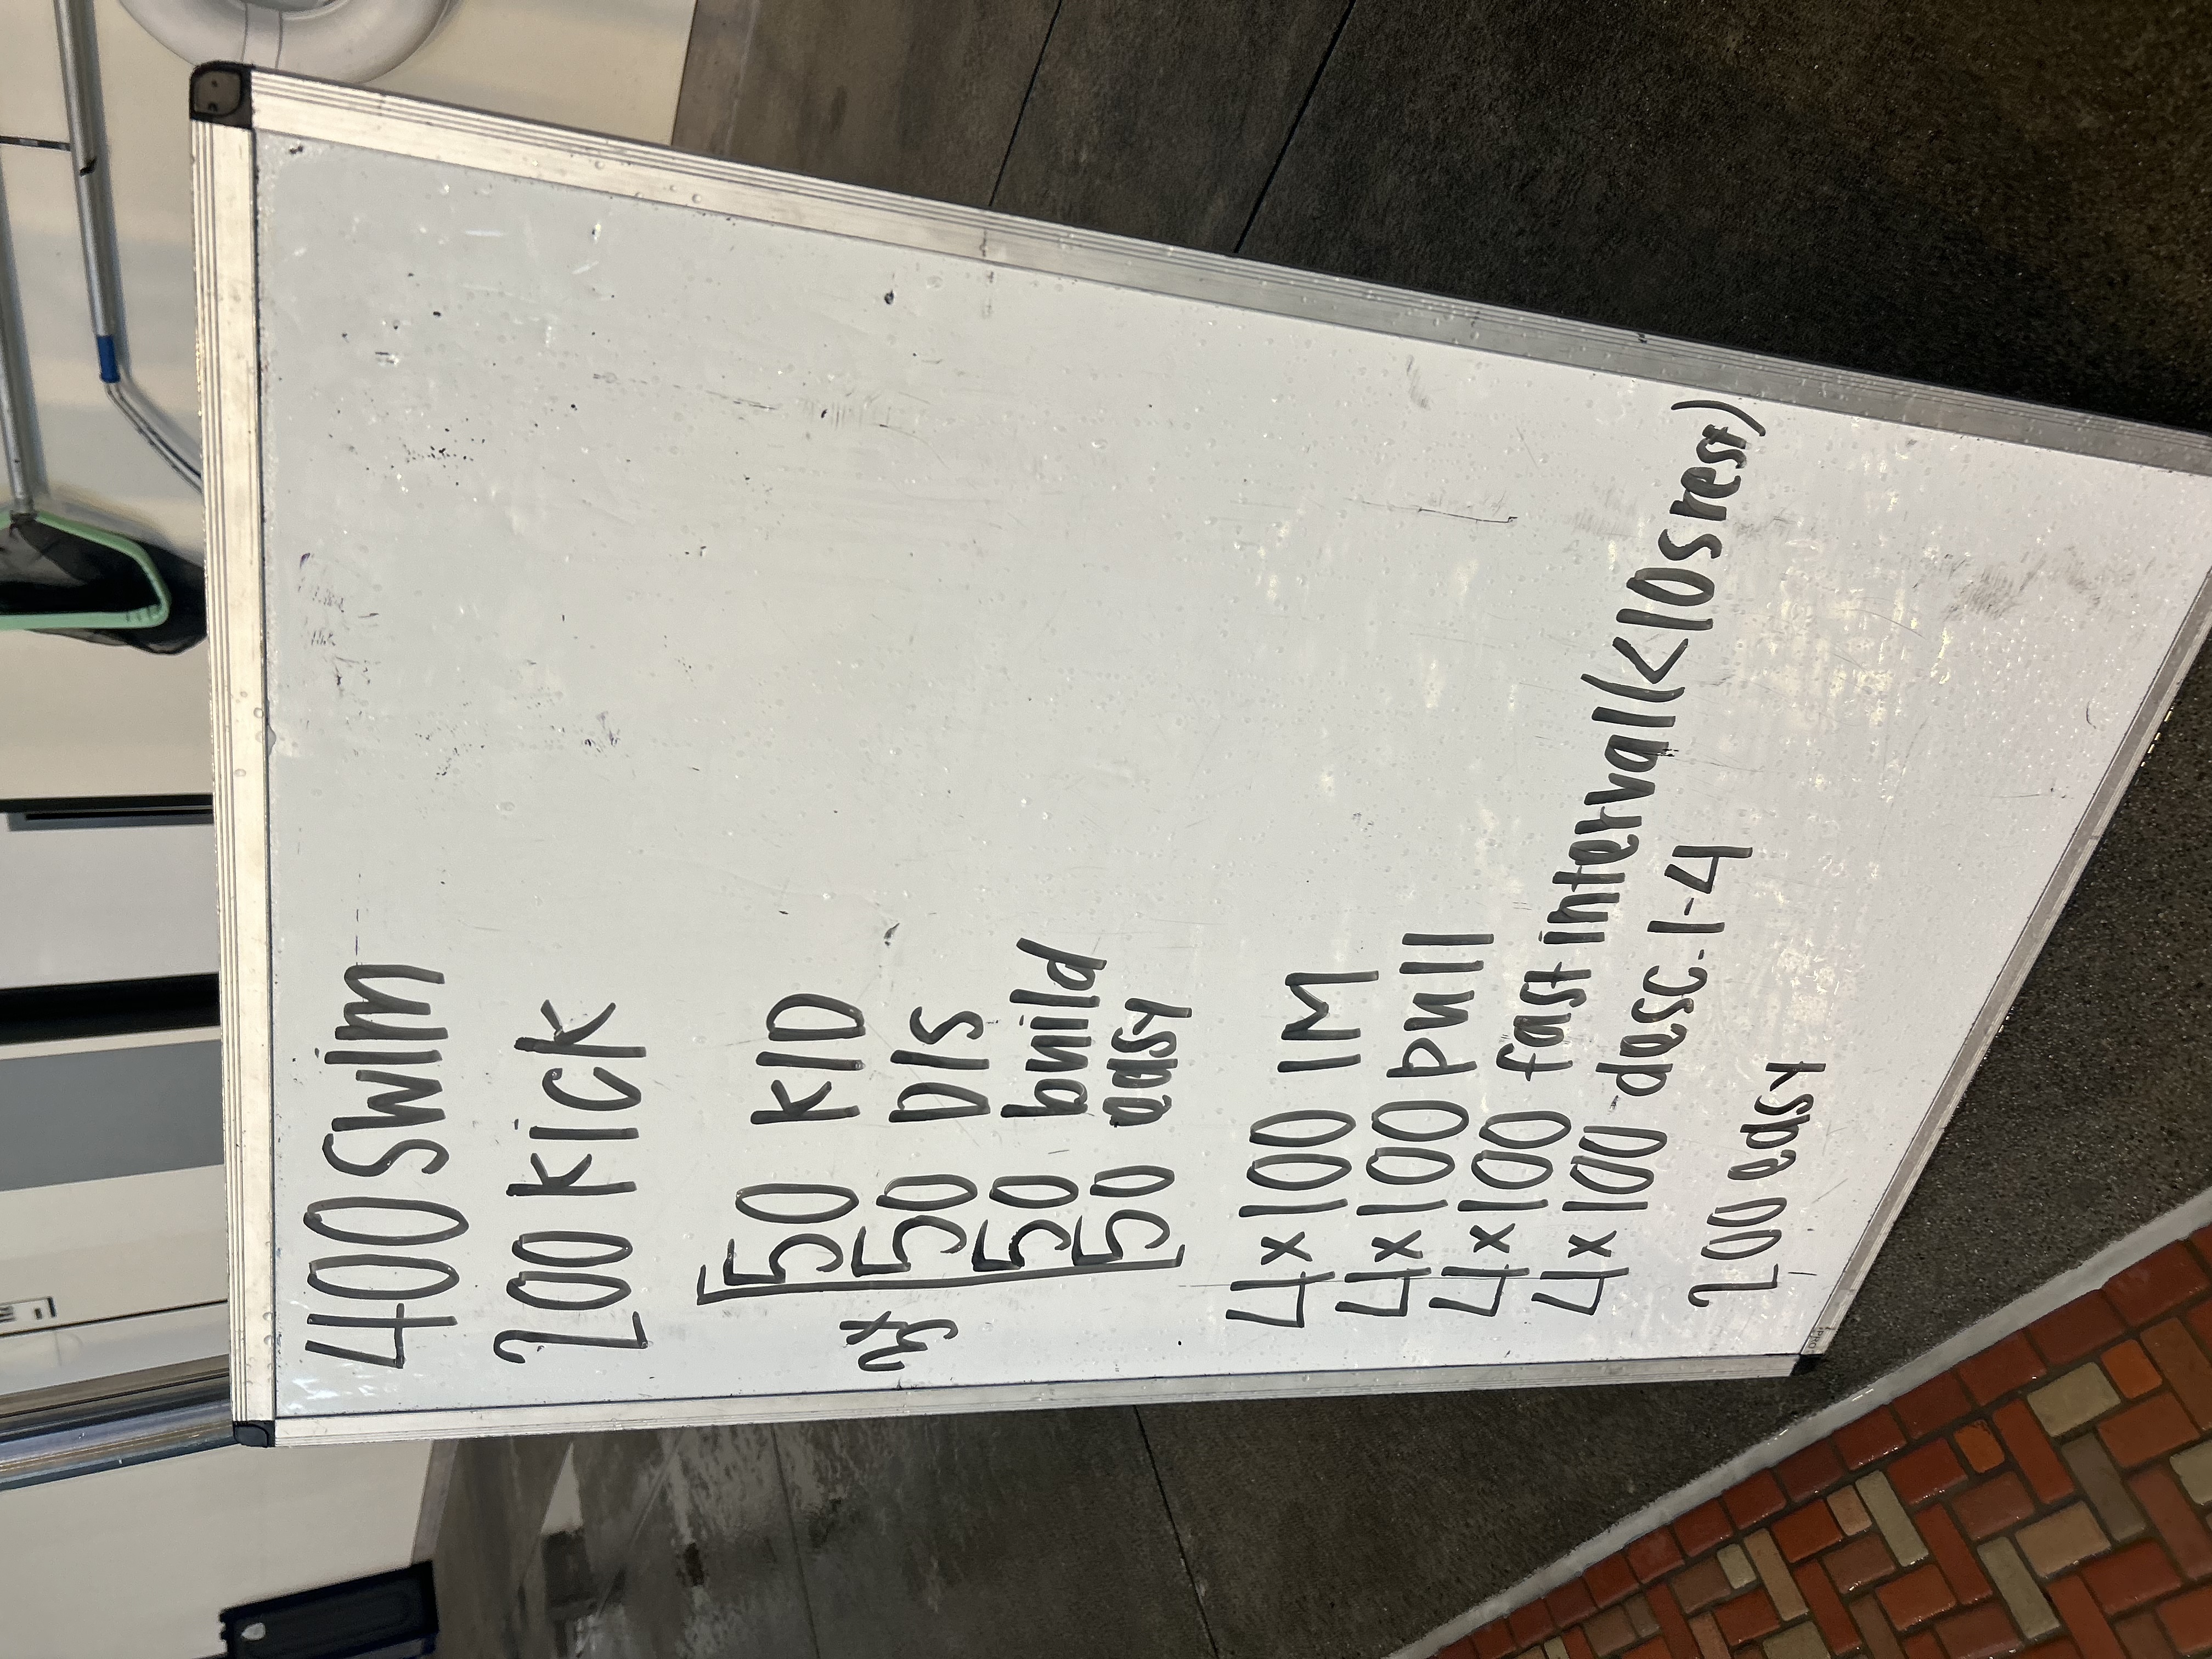 400 swim
200 kick
3x
50 K/D
50 D/S
50 build
50 easy
4x100 IM
4x100 pull
4x100 fast interval (<10s rest)
4x100 desc. 1-4
200 easy